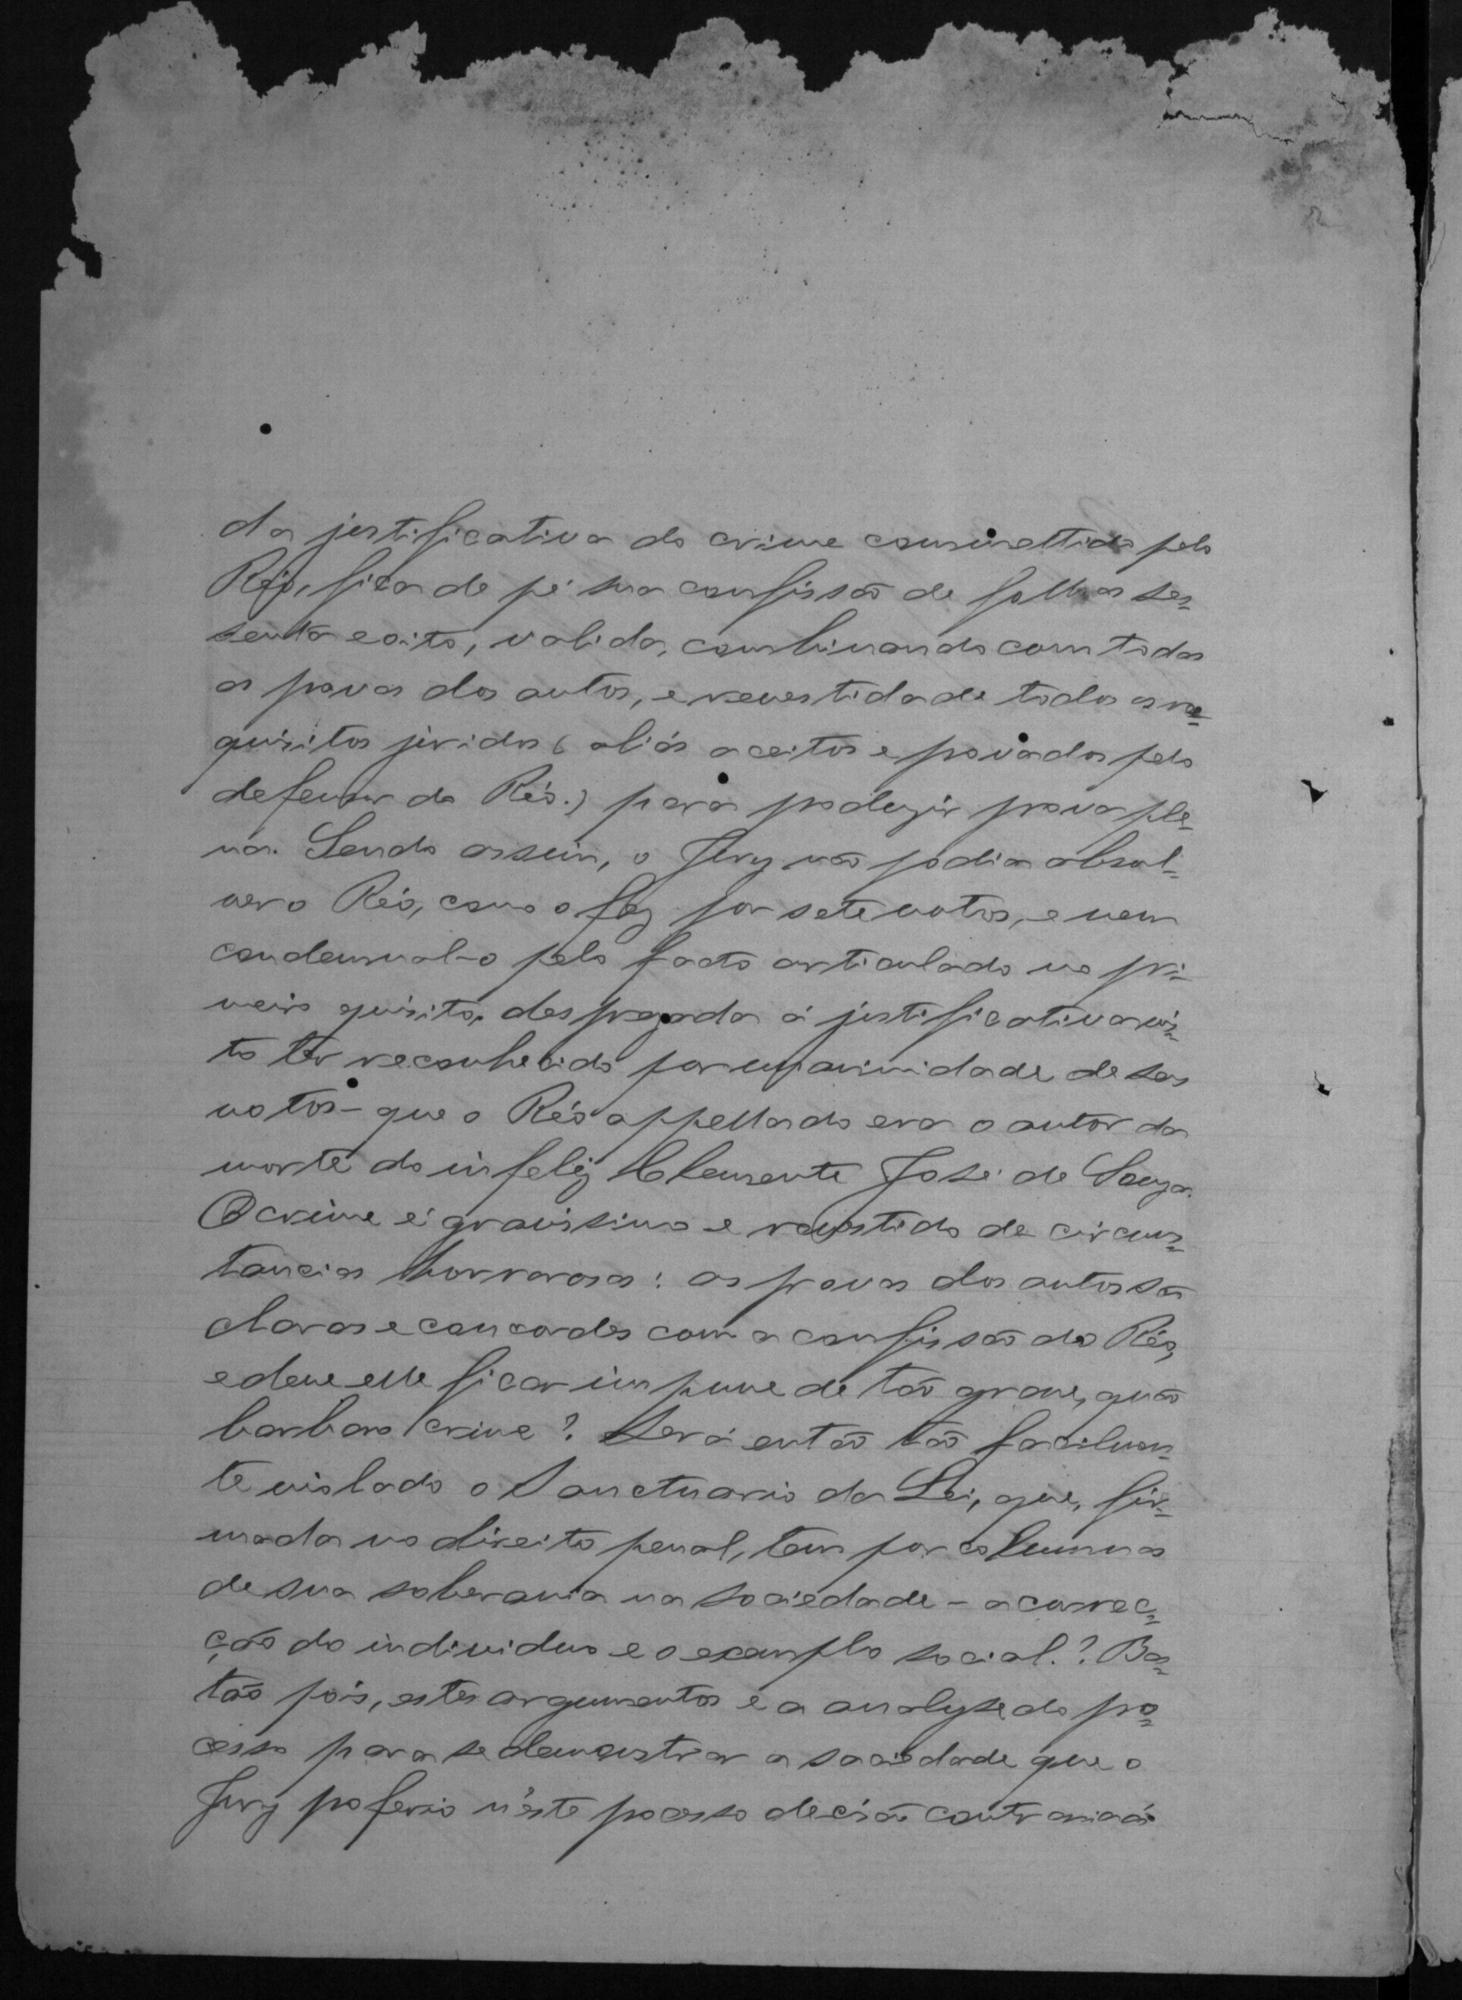 da justificativa do crime commettido pelo
Réo, fica de pé sua confissão de folhas ses-
senta e oito, valida, combinando com todas
as provas dos autos, e revestida de todos os re-
quisitos júridos (aliás aceitos e provados pelo
defensor do Réo.) para produzir prova ple-
na. Sendo assim, o Jury não podia absol-
ver o Réo, como o fez por sete votos, e nem
condemnal-o pelo facto articulado no pri-
meiro quisito, desprezada a justificativa vis-
to ter reconhecido por unanimidade de seus
votos - que o Réo appellado era o autor da
morte do infeliz Clemente José de Souza.
O crime é gravissimo e revestido de circuns-
tancias horrorosas: as provas dos autos são
claras e concordes com a confissão do Réo,
e deve elle ficar impune de tão grave, quão
barbaro crime? Será então tão facilmen-
te violado o Sanctuario da Lei, que, fir-
mada no direito penal, tem por columnas
de sua soberania na sociedade - a correc-
ção do individuo e o exemplo social.? Bas-
tão pois, estes argumentos e a analyse do pro-
cesso para se demonstrar a sociedade que o
Jury proferio n'este processo decisão contraria ás